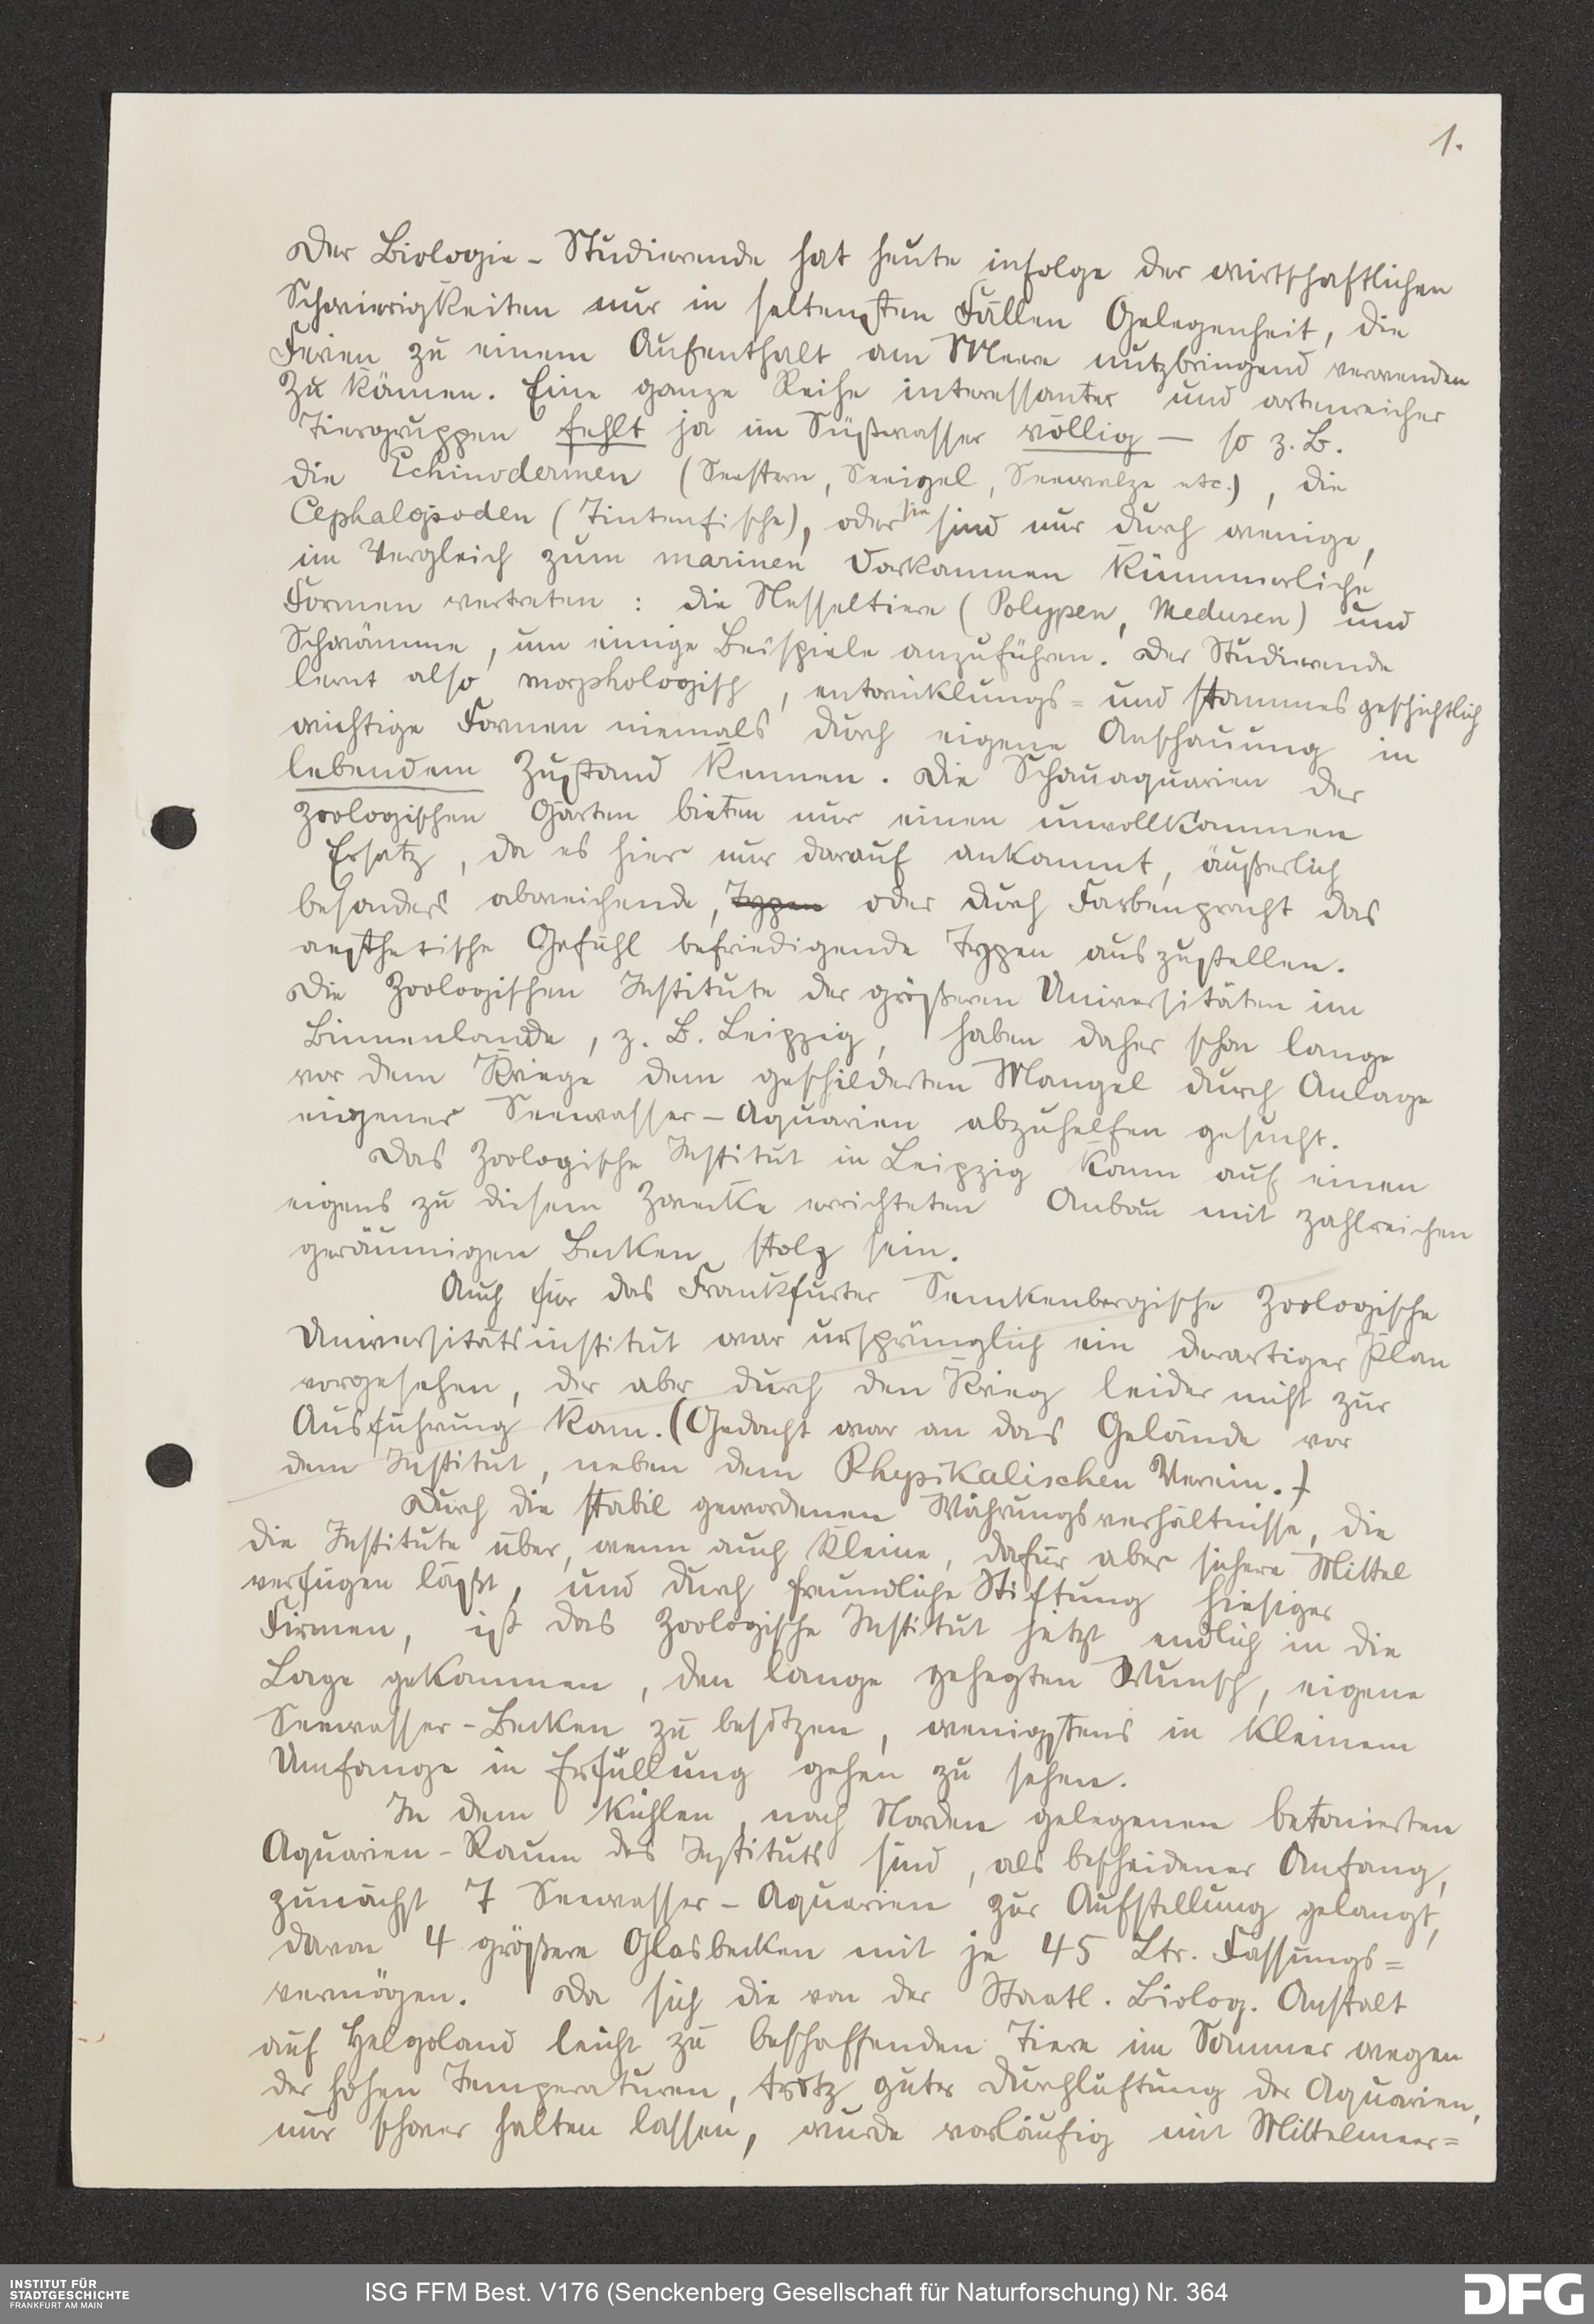 1.
Der Biologie-Studierende hat heute infolge der wirtschaftlichen
Schwierigkeiten nur in seltensten Fällen Gelegenheit, die
Ferien zu einem Aufenthalt am Meere nutzbringend verwenden
zu können. Eine ganze Reihe interessanter und artenreicher
Tiergruppen fehlt ja im Süßwasser völlig — so z. B.
die Echinodermen (Seestern, Seeigel, Seewalze etc.), die
Cephalopoden (Tintenfische), oder sie sind nur durch wenige,
im Vergleich zum marinen Vorkommen kümmerliche
Formen vertreten: die Nesseltiere (Polypen, Medusen) und
Schwämme, um einige Beispiele anzuführen. Der Studierende
lernt also morphologisch, entwicklungs= und stammesgeschichtlich
wichtige Formen niemals durch eigene Anschauung in
lebendem Zustand kennen. Die Schauaquarien der
zoologischen Gärten bieten nur einen unvollkommen
Ersatz, da es hier nur darauf ankommt, äußerlich
besonders abweichende, Typen oder durch Farbenpracht das
aesthetische Gefühl befriedigende Typen auszustellen.
Die Zoologischen Institute der größeren Universitäten im
Binnenlande, z. B. Leipzig, haben daher schon lange
vor dem Kriege dem geschilderten Mangel durch Anlage
eigener Seewasser-Aquarien abzuhelfen gesucht.
Das Zoologische Institut in Leipzig kann auf einen
eigens zu diesem Zwecke errichteten Anbau mit zahlreichen
geräumigen Becken stolz sein.
Auch für das Frankfurter Senckenbergische Zoologische
Universitätsinstitut war ursprünglich ein derartiger Plan
vorgesehen, der aber durch den Krieg leider nicht zur
Ausführung kam. (Gedacht war an das Gelände vor
dem Institut, neben dem Physikalischen Verein.)
Durch die stabil gewordenen Währungsverhältnisse, die
die Institute über, wenn auch kleine, dafür aber sichere Mittel
verfügen läßt, und durch freundliche Stiftung hiesiger
Firmen, ist das Zoologische Institut jetzt endlich in die
Lage gekommen, den lange gehegten Wunsch, eigene
Seewasser-Becken zu besitzen, wenigstens in kleinem
Umfange in Erfüllung gehen zu sehen.
In dem kühlen, nach Norden gelegenen betonierten
Aquarien-Raum des Instituts sind, als bescheidener Anfang,
zunächst 7 Seewasser-Aquarien zur Aufstellung gelangt,
davon 4 größere Glasbecken mit je 45 Ltr. Fassungs=
vermögen. Da sich die von der Staatl. Biolog. Anstalt
auf Helgoland leicht zu beschaffenden Tiere im Sommer wegen
der hohen Temperaturen, trotz guter Durchlüftung der Aquarien,
nur schwer halten lassen, wurde vorläufig mit Mittelmeer=
INSTITUT FÜR
STADTGESCHICHTE
FRANKFURT AM MAIN
ISG FFM Best. V176 (Senckenberg Gesellschaft für Naturforschung) Nr. 364
DFG